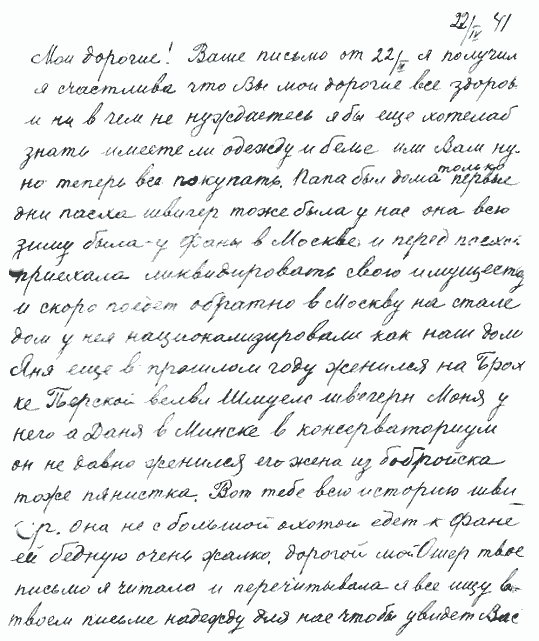 22/IV 41
Мои дорогие! Ваше письмо от 22/III я получил
я счастлива что Вы мои дорогие все здоров
и ни в чем не нуждаетесь я бы еще хотелаб
знать имеете ли одежду и белье или Вам ну-
но теперь все покупать. Папа был дома только первые
дни пасха швигер тоже была у нас она всю
зиму была у Фаны в Москве и перед пасхой
приехала ликвидировать свою имущество
и скоро поедет обратно в Москву на стале
дом у нея национализировали как наш дом
Яня еще в прошлом году женился на Брох
ке Перской велвл Шмуелс швегерн Моня у
него а Даня в Минске в консерваториум
он не давно женился его жена из бобройска
тоже пянистка. Вот тебе всю историю шви-
гр. она не с большой охотой едет к Фане
ей бедную очень жалко. дорогой мой Ошер твое
письмо я читала и перечитывала я все ищу в
твоем письме надежду для нас чтобы увидет Вас